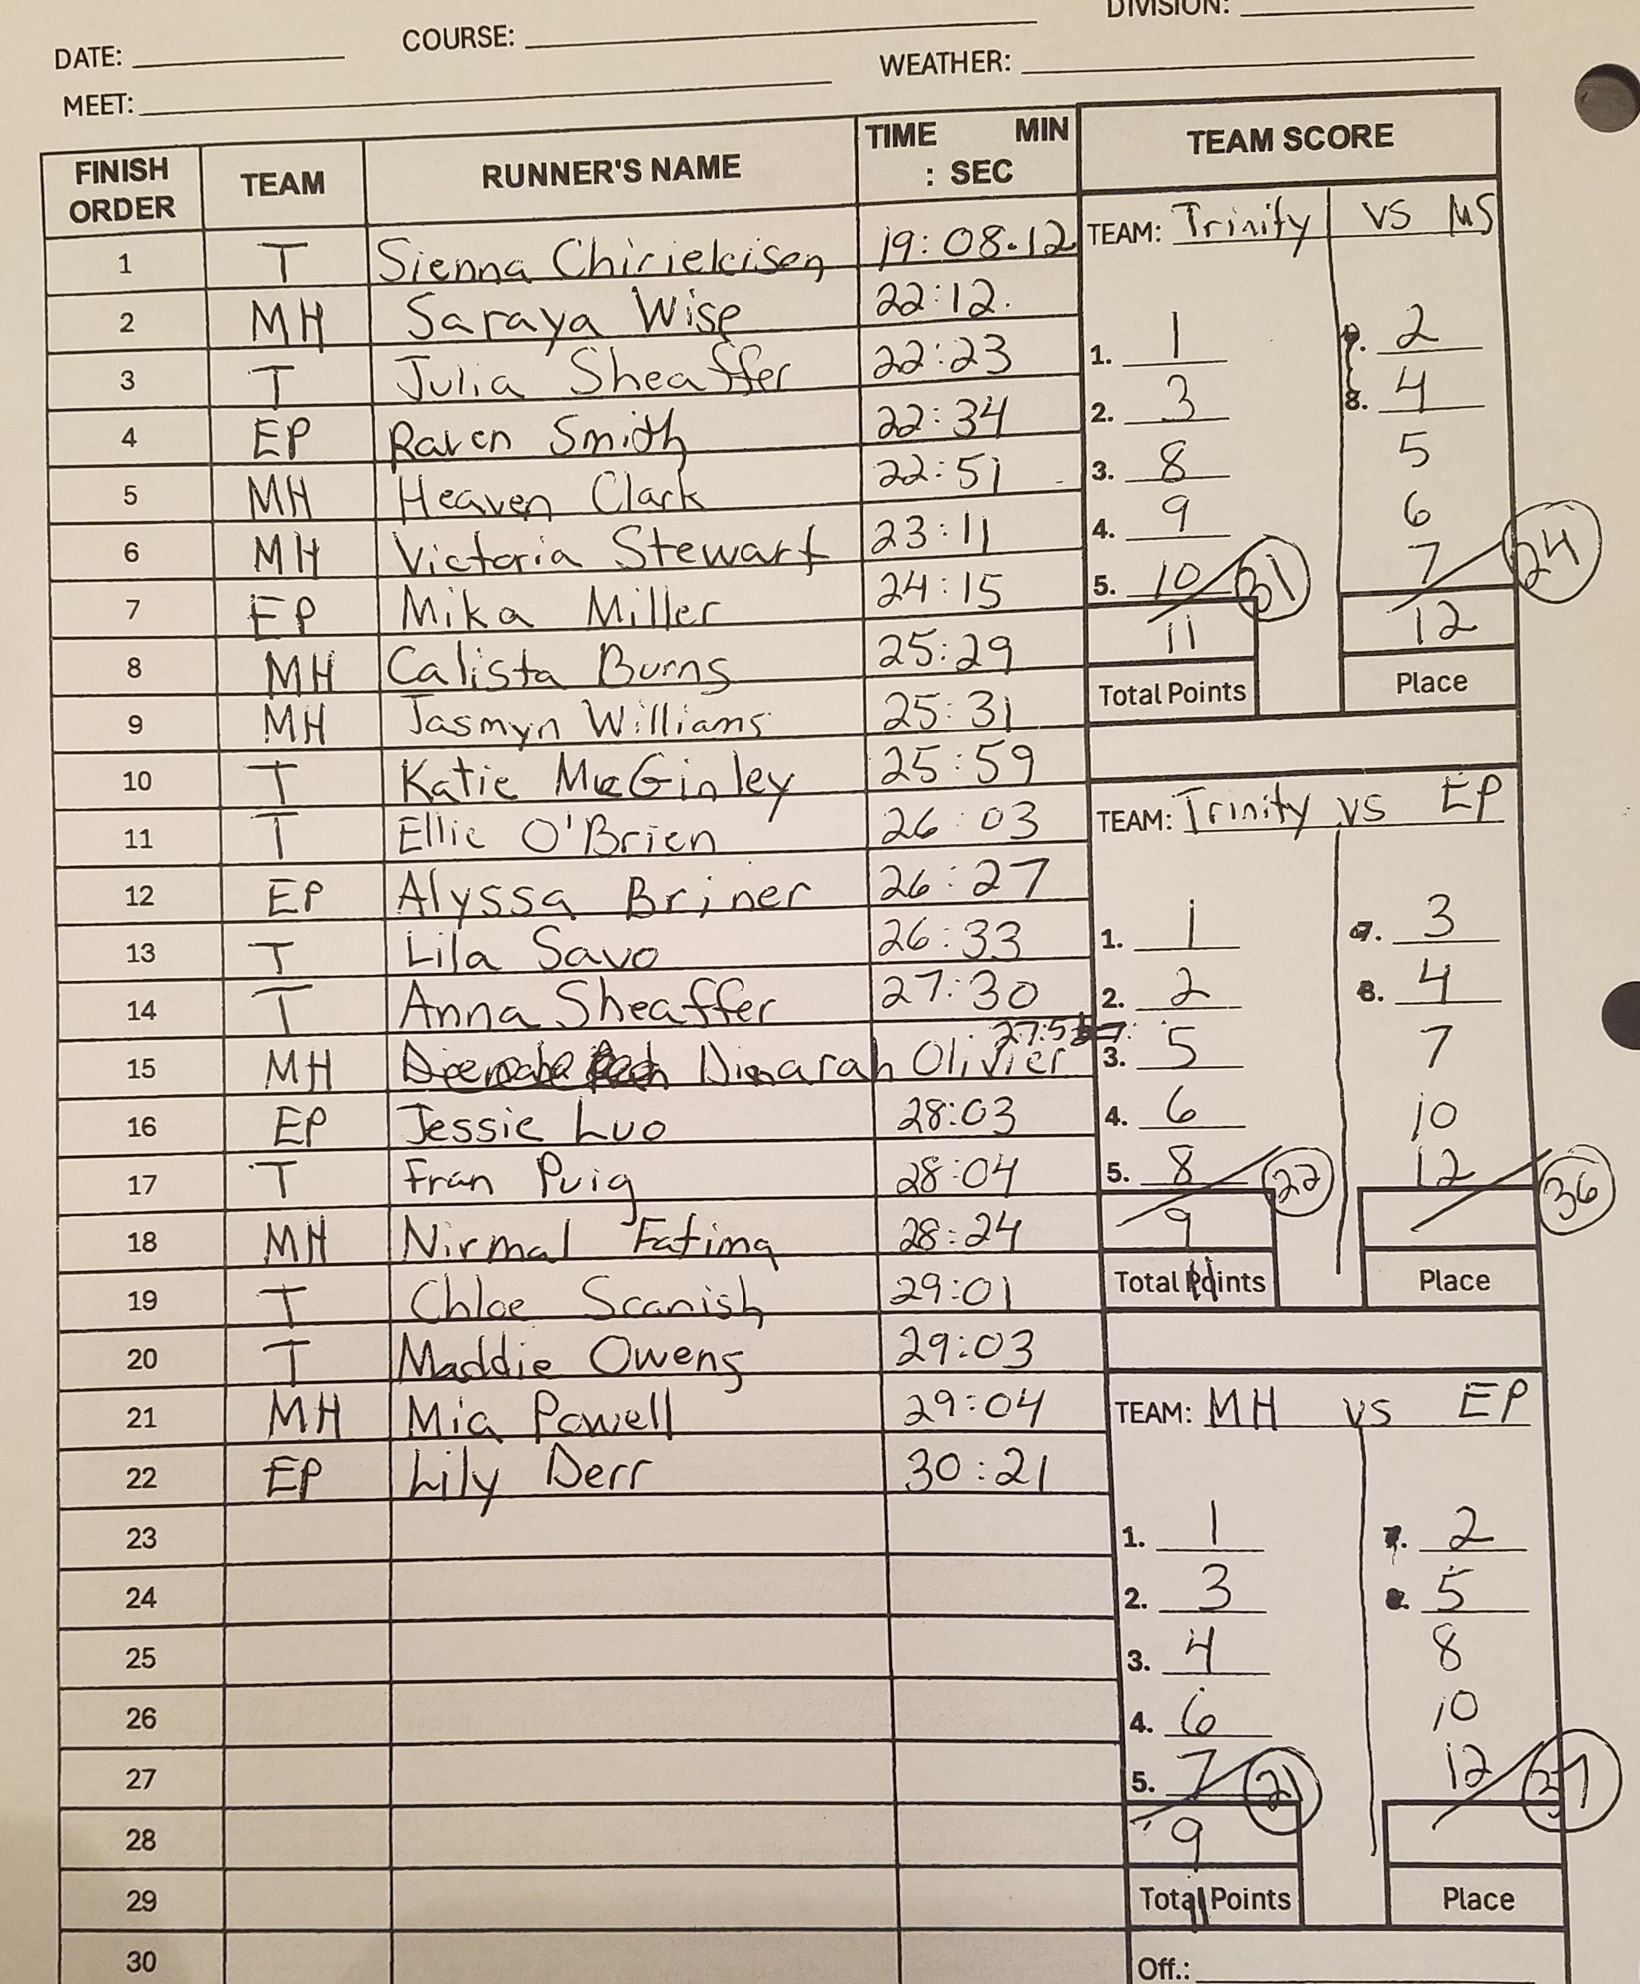 DIVISION:
DATE: COURSE:
MEET: WEATHER:
FINISH ORDER TEAM RUNNER'S NAME TIME MIN : SEC TEAM SCORE
1 T Sienna 19:08.12
2 MH Saraya Wise 22:12.
3 T Julia Sheaffer 22:23
4 EP Raven Smith 22:34
5 MH Heaven Clark 22:51
6 MH Victoria Stewart 23:11
7 EP Mika Miller 24:15
8 MH Calista Burns 25:29
9 MH Jasmyn Williams 25:31
10 T Katie McGinley 25:59
11 T Ellie O'Brien 26:03
12 EP Alyssa Briner 26:27
13 T Lila Savo 26:33
14 T Anna Sheaffer 27:30
15 MH Dinarah Olivier
16 EP Jessie Luo 28:03
17 T Fran Puig 28:04
18 MH Nirmal Fatima 28:24
19 T Chloe Scanish 29:01
20 T Maddie Owens 29:03
21 MH Mia Powell 29:04
22 EP Lily Derr 30:21
23
24
25
26
27
28
29
30
TEAM: Trinity VS MS
1. 1 2
2. 3 8. 4
3. 8 5
4. 9 6
5. 10 31 7 24
11 12
Total Points Place
TEAM: Trinity VS EP
1. 1 3
2. 2 8. 4
3. 5 7
4. 6 10
5. 8 22 12 36
9
Total Points Place
TEAM: MH VS EP
1. 1 2
2. 3 5
3. 4 8
4. 6 10
5. 7 21 12 37
9
11
Total Points Place
Off.: